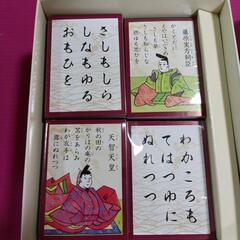 さしもしら
しなもゆる
おもひを
藤原実方朝臣
かくとだに
えやはいぶきの
さしも草
さしも知らじな
燃ゆる思ひを
天智天皇
秋の田の
かりほの庵の
苫をあらみ
わが衣手は
露にぬれつつ
わかころも
てはつゆに
ぬれつつ